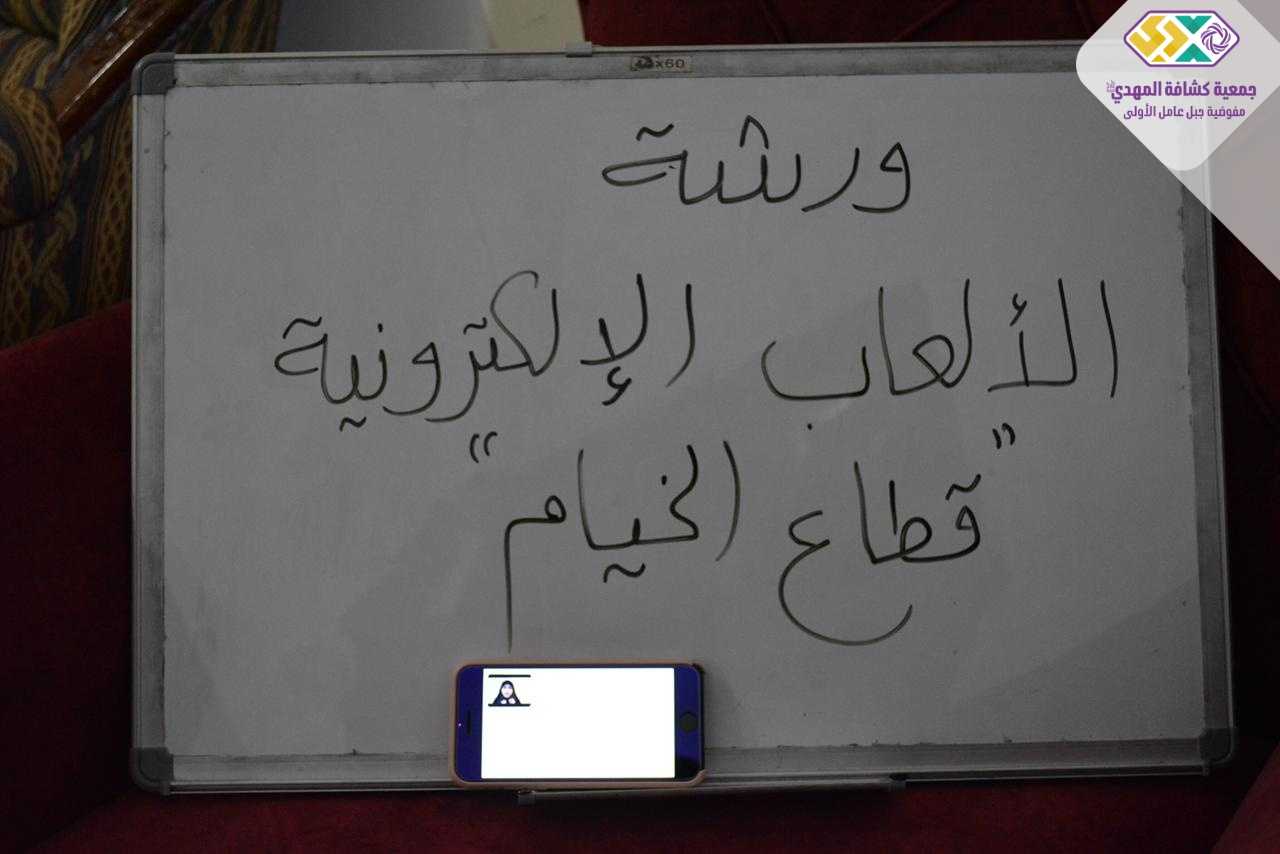 جمعية كشافة المهدي
مفوضية جبل عامل الأولى
ورشة
الألعاب الإلكترونية
"قطاع الخيام"